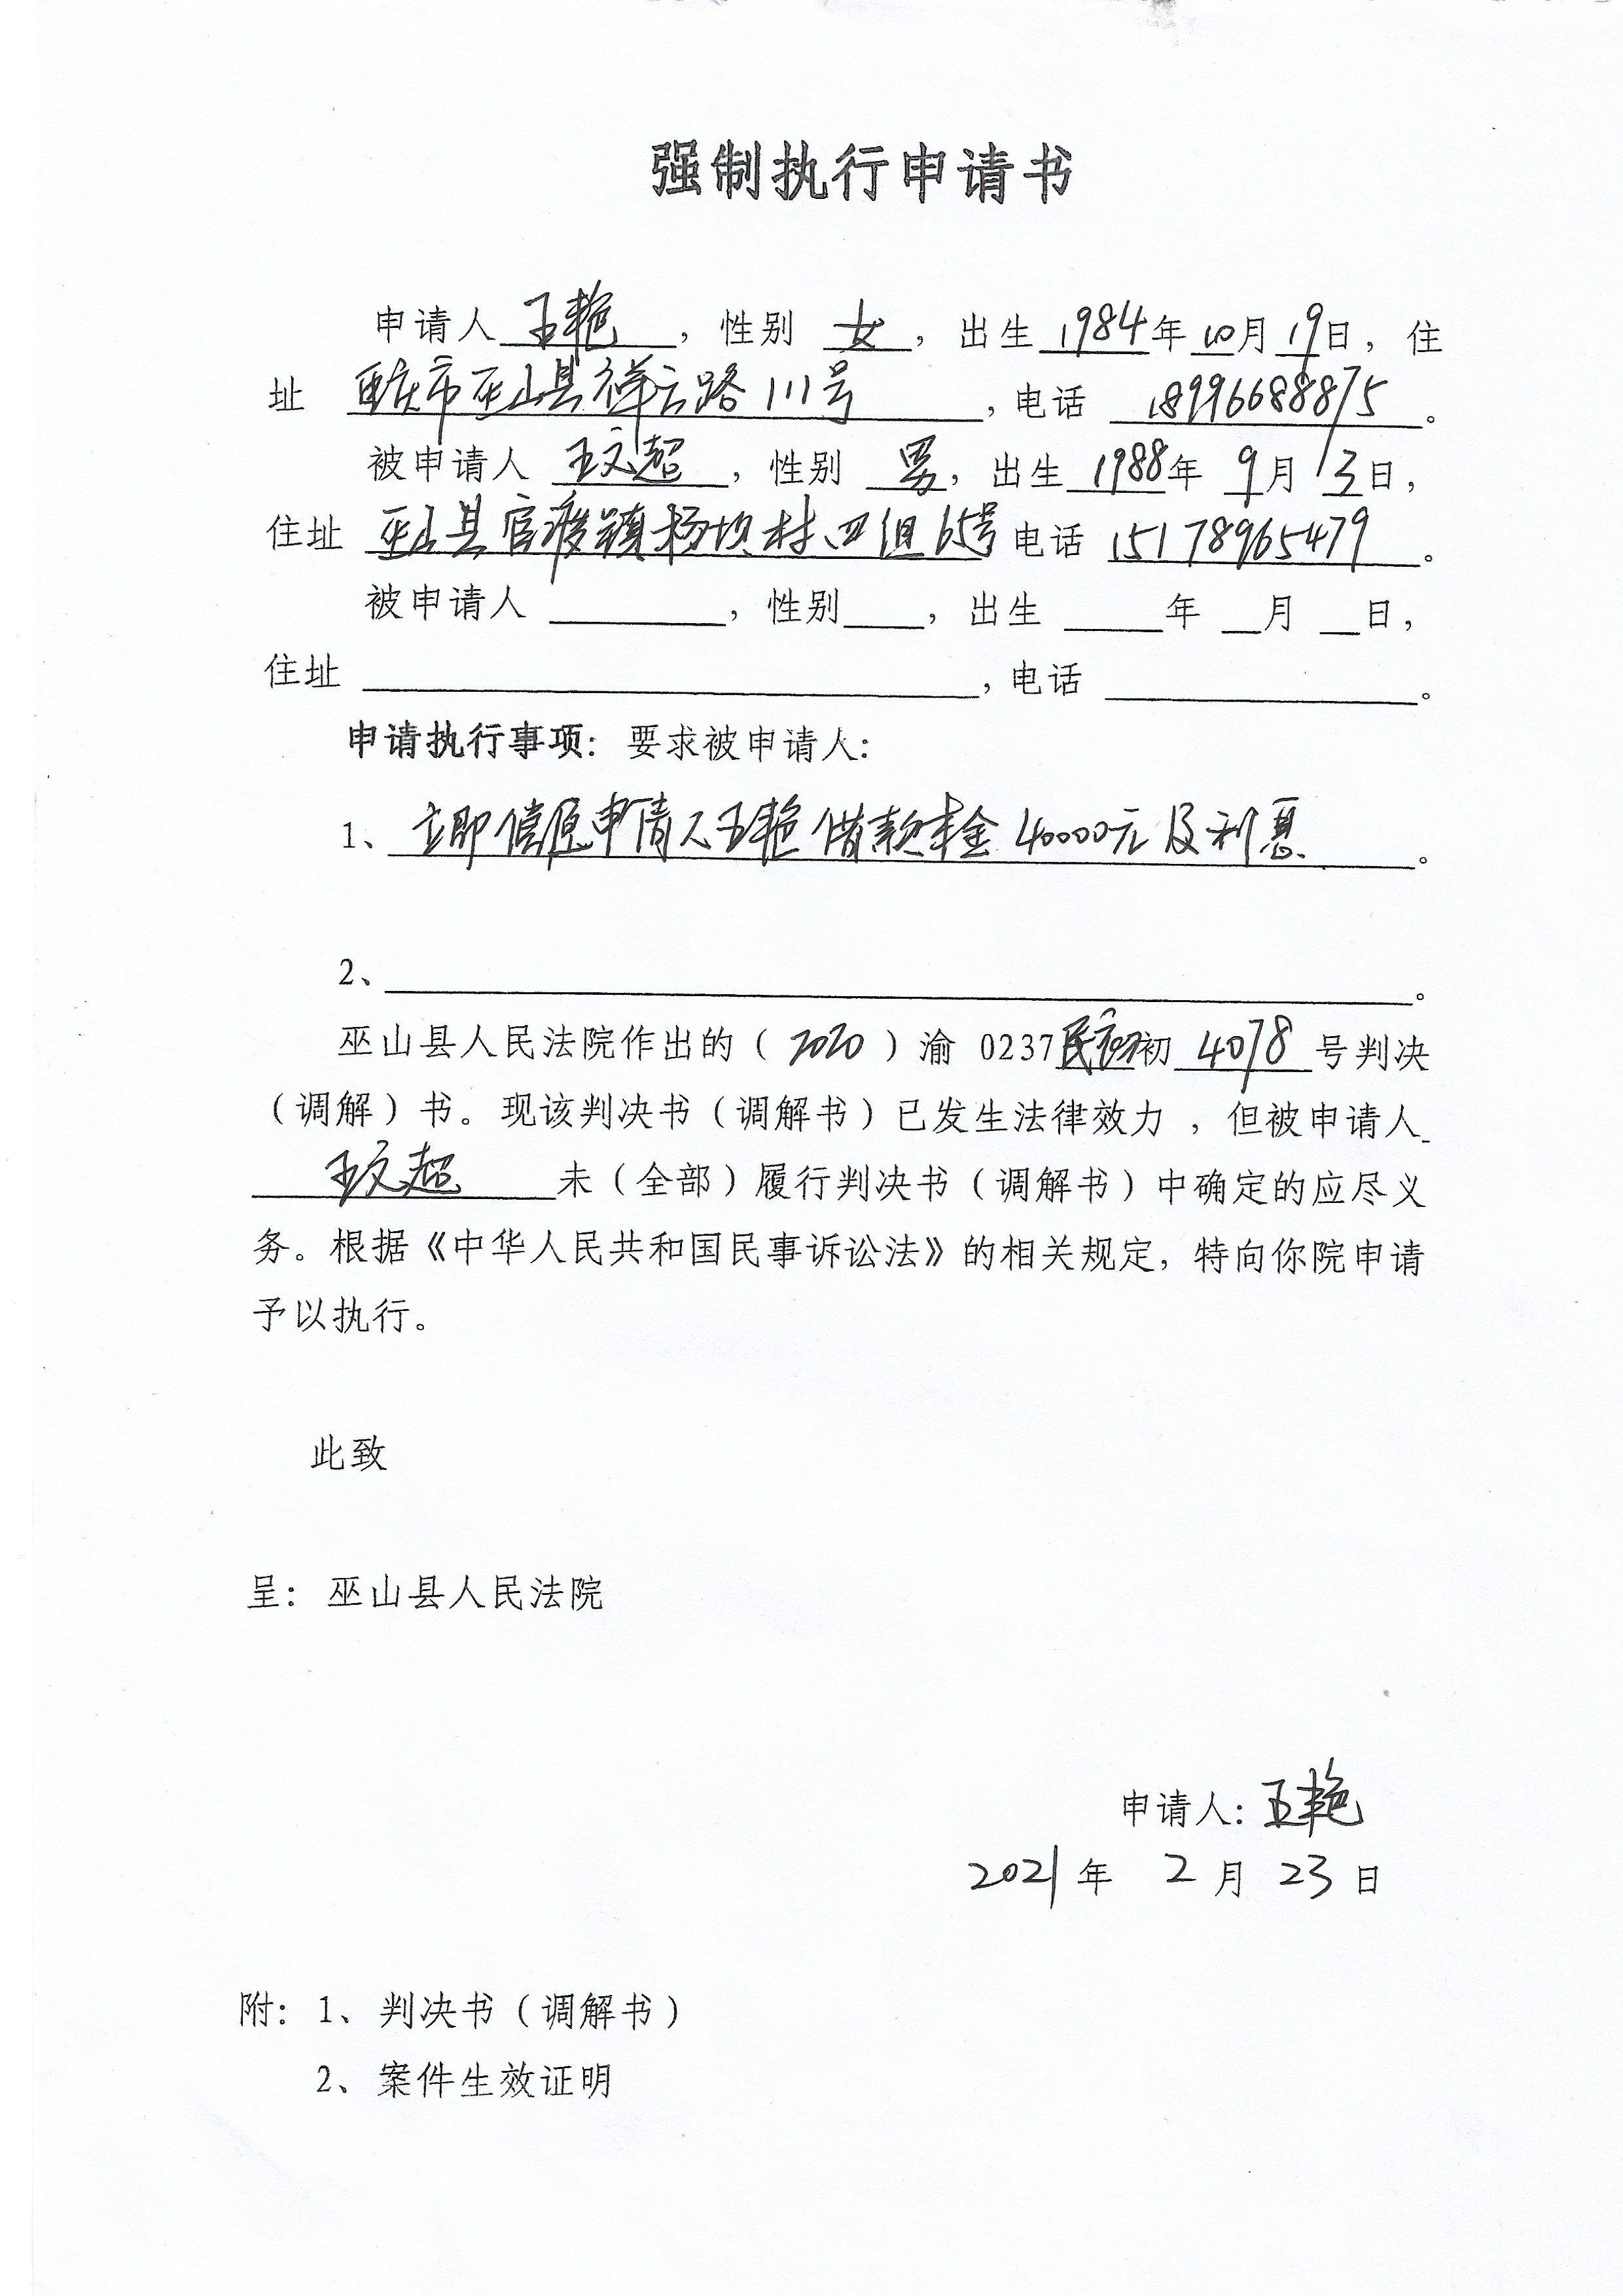 强制执行申请书
申请人 王艳 ，性别 女 ，出生 1984年 10月 19日，住
址 重庆市巫山县祥云路111号 ，电话 18996688875 。
被申请人 王文超 ，性别 男，出生 1988年 9月 13日，
住址 巫山县官渡镇杨坝村四组65号 电话 15178965479 。
被申请人 ________，性别____，出生 _____年 __月 __日，
住址 ______________，电话 ______________。
申请执行事项：要求被申请人：
1、立即偿还申请人王艳借款本金40000元及利息 。
2、______________。
巫山县人民法院作出的（2020）渝 0237民初初 4078 号判决
（调解）书。现该判决书（调解书）已发生法律效力 ，但被申请人
王文超 未（全部）履行判决书（调解书）中确定的应尽义
务。根据《中华人民共和国民事诉讼法》的相关规定，特向你院申请
予以执行。
此致
呈：巫山县人民法院
申请人：王艳
2021 年 2 月 23 日
附：1、判决书（调解书）
2、案件生效证明